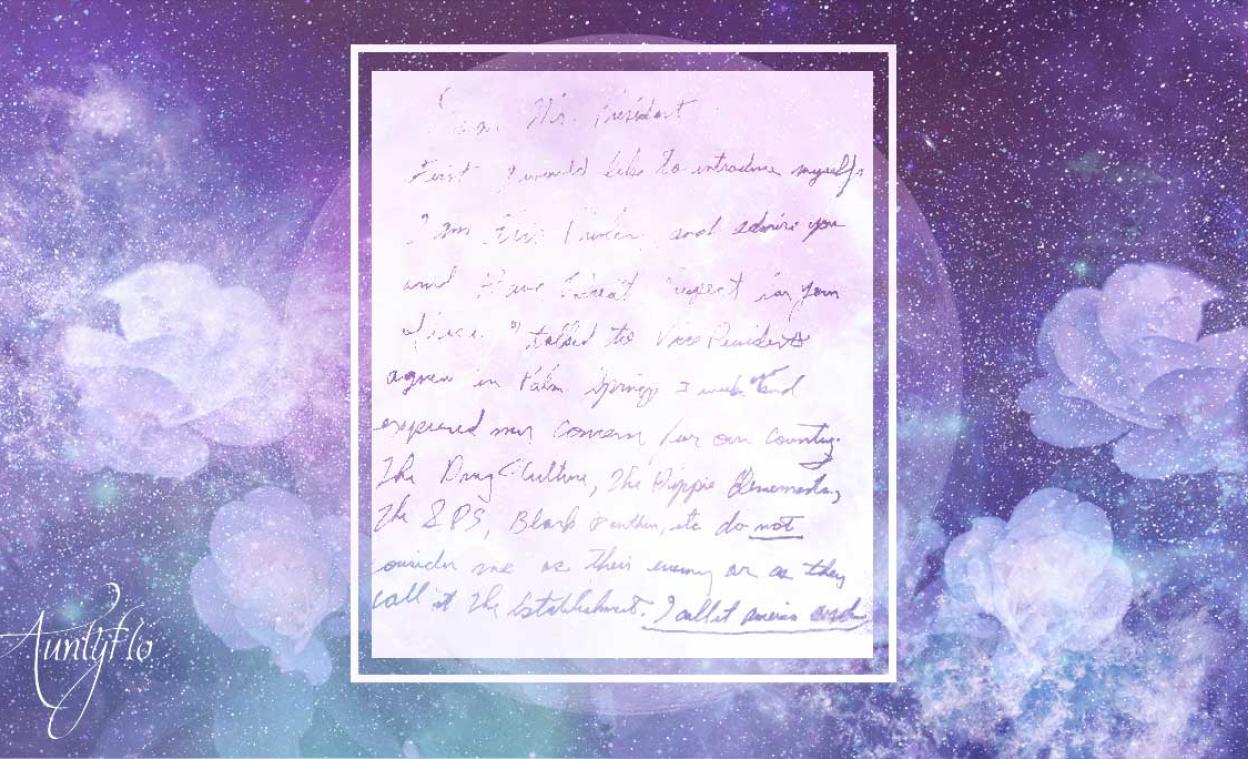 Dear Mr. President
First I would like to introduce myself.
I am Elvis Presley and admire you
and Have Great Respect for your
office. I talked to Vice President
Agnew in Palm Springs I week end
expressed my concern for our country.
The Drug Culture, The Hippie Elements,
The SDS, Black Panther, etc do not
consider me as their enemy or as they
call it The Establishment. I call it America and
AuntyFlo